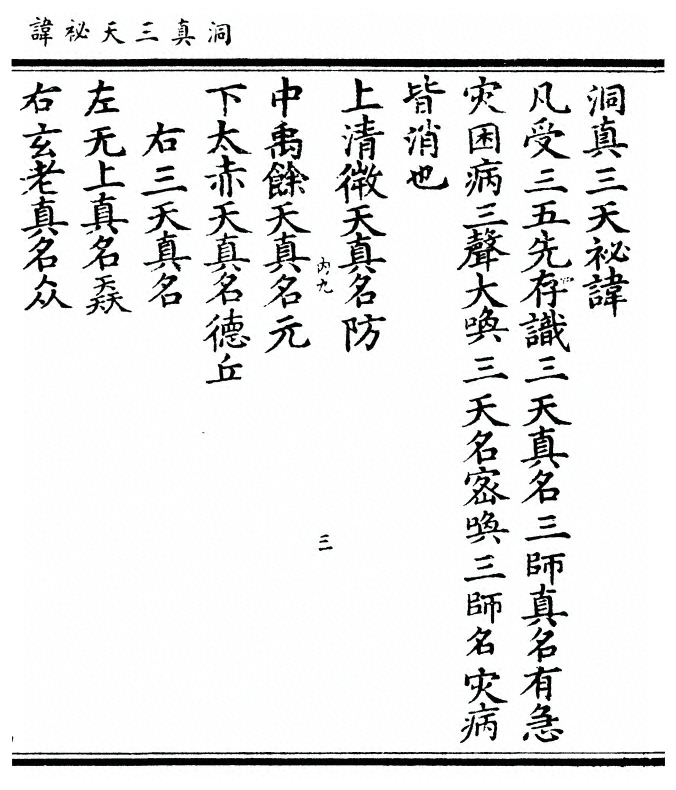 洞真三天祕諱
洞真三天祕諱
凡受三五先存識三天真名三師真名有急
灾困病三聲大喚三天名密喚三師名灾病
皆消也
上清微天真名防
内九
三
中禹餘天真名元
下太赤天真名德丘
右三天真名
左无上真名𠔻
右玄老真名众